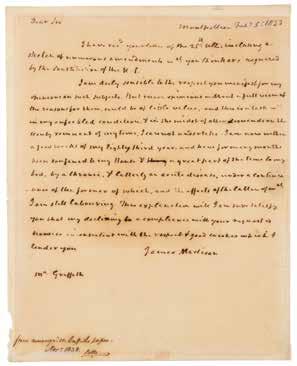 Dear Sir Montpellier Feby 5. 1833
I have recd. your letter of the 25th Ulto. inclosing a
sketch of numerous amendments wch. you think are required
by the Constitution of the U. S.
I am duly sensible to the respect you manifest for my
opinion on such subjects. But mere opinions without a full view of
the reasons for them could be of little value, and this in
my enfeebled condition & in the midst of other demands on the
scanty remnant of my time, I can not undertake. I am now within
a few weeks of my eighty third year, and have for many months
been confined to my House & a great part of the time to my
bed, by a chronic, & latterly an acute disease, under a continu-
ance of the former of which, and the effects of the latter of wch.
I am still labouring. This explanation will I am sure satisfy
you that my declining a compliance with your request is
no wise inconsistent with the respect & good wishes which I
tender you
James Madison
Mr. Griffith